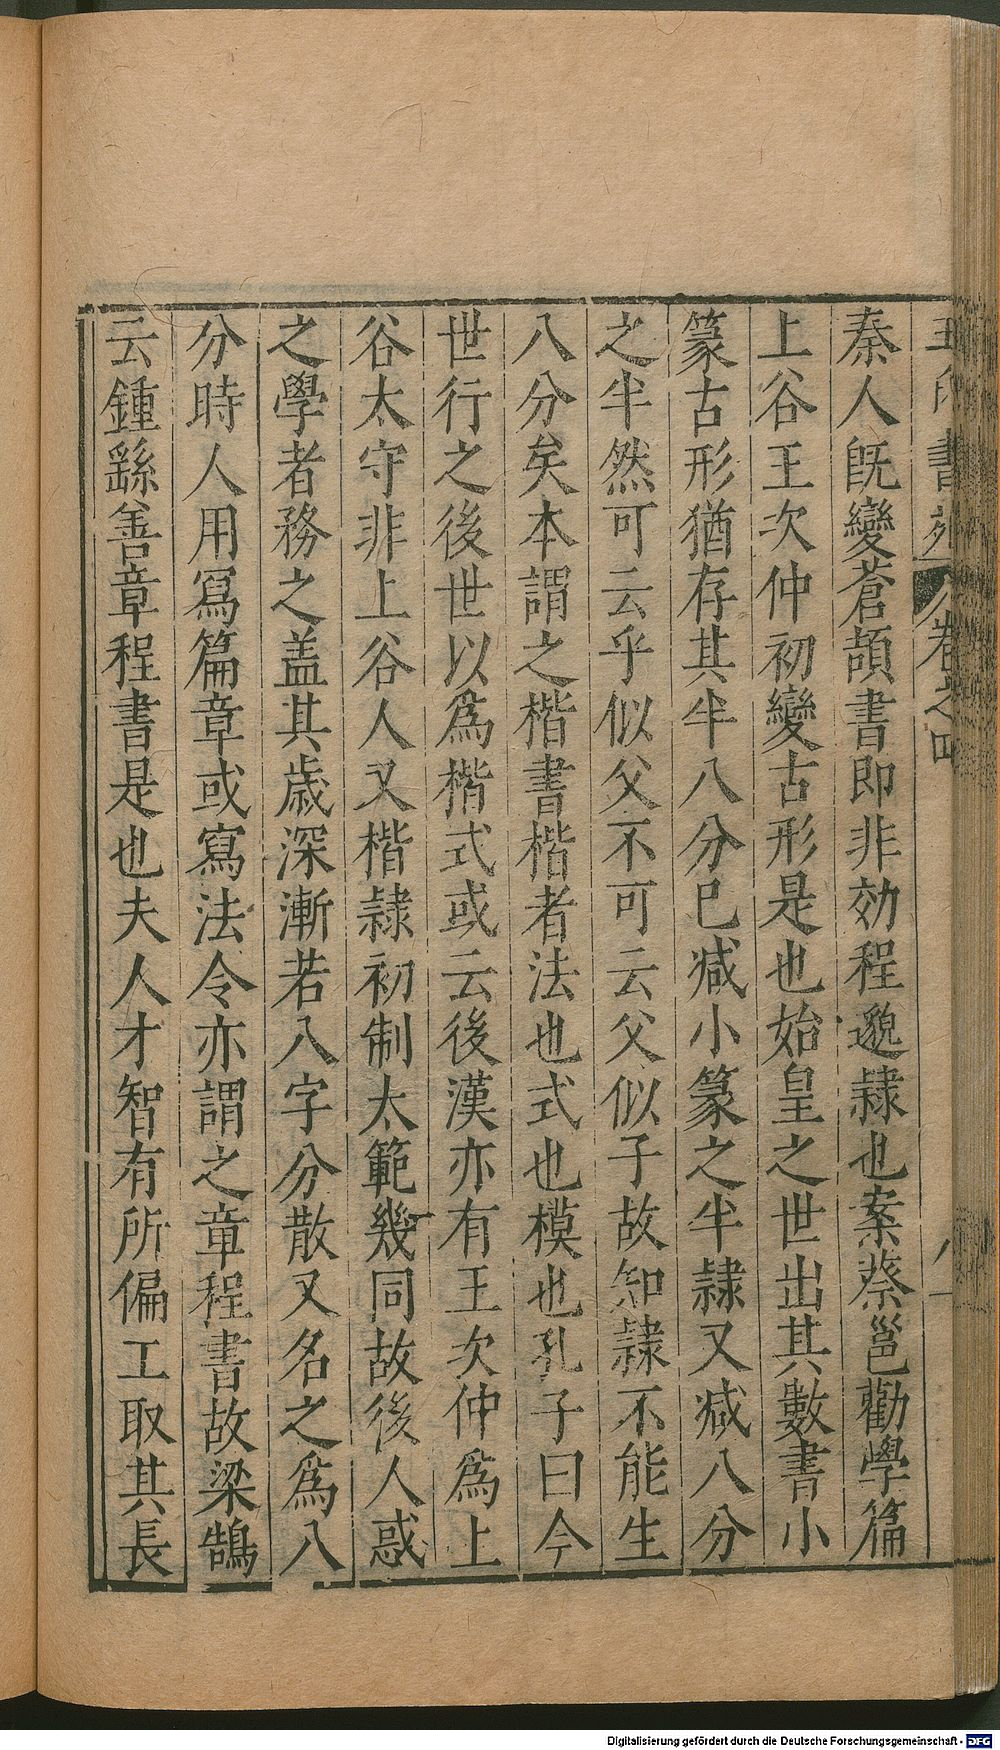 書苑 卷之四 八
秦人旣變蒼頡書即非効程邈隷也案蔡邕勸學篇
上谷王次仲初變古形是也始皇之世出其數書小
篆古形猶存其半八分已減小篆之半隷又減八分
之半然可云乎似父不可云父似子故知隷不能生
八分矣本謂之楷書楷者法也式也模也孔子曰今
世行之後世以爲楷式或云後漢亦有王次仲爲上
谷太守非上谷人又楷隷初制太範幾同故後人惑
之學者務之盖其歲深漸若八字分散又名之爲八
分時人用冩篇章或寫法令亦謂之章程書故梁鵠
云鍾繇善章程書是也夫人才智有所偏工取其長
Digitalisierung gefördert durch die Deutsche Forschungsgemeinschaft - DFG